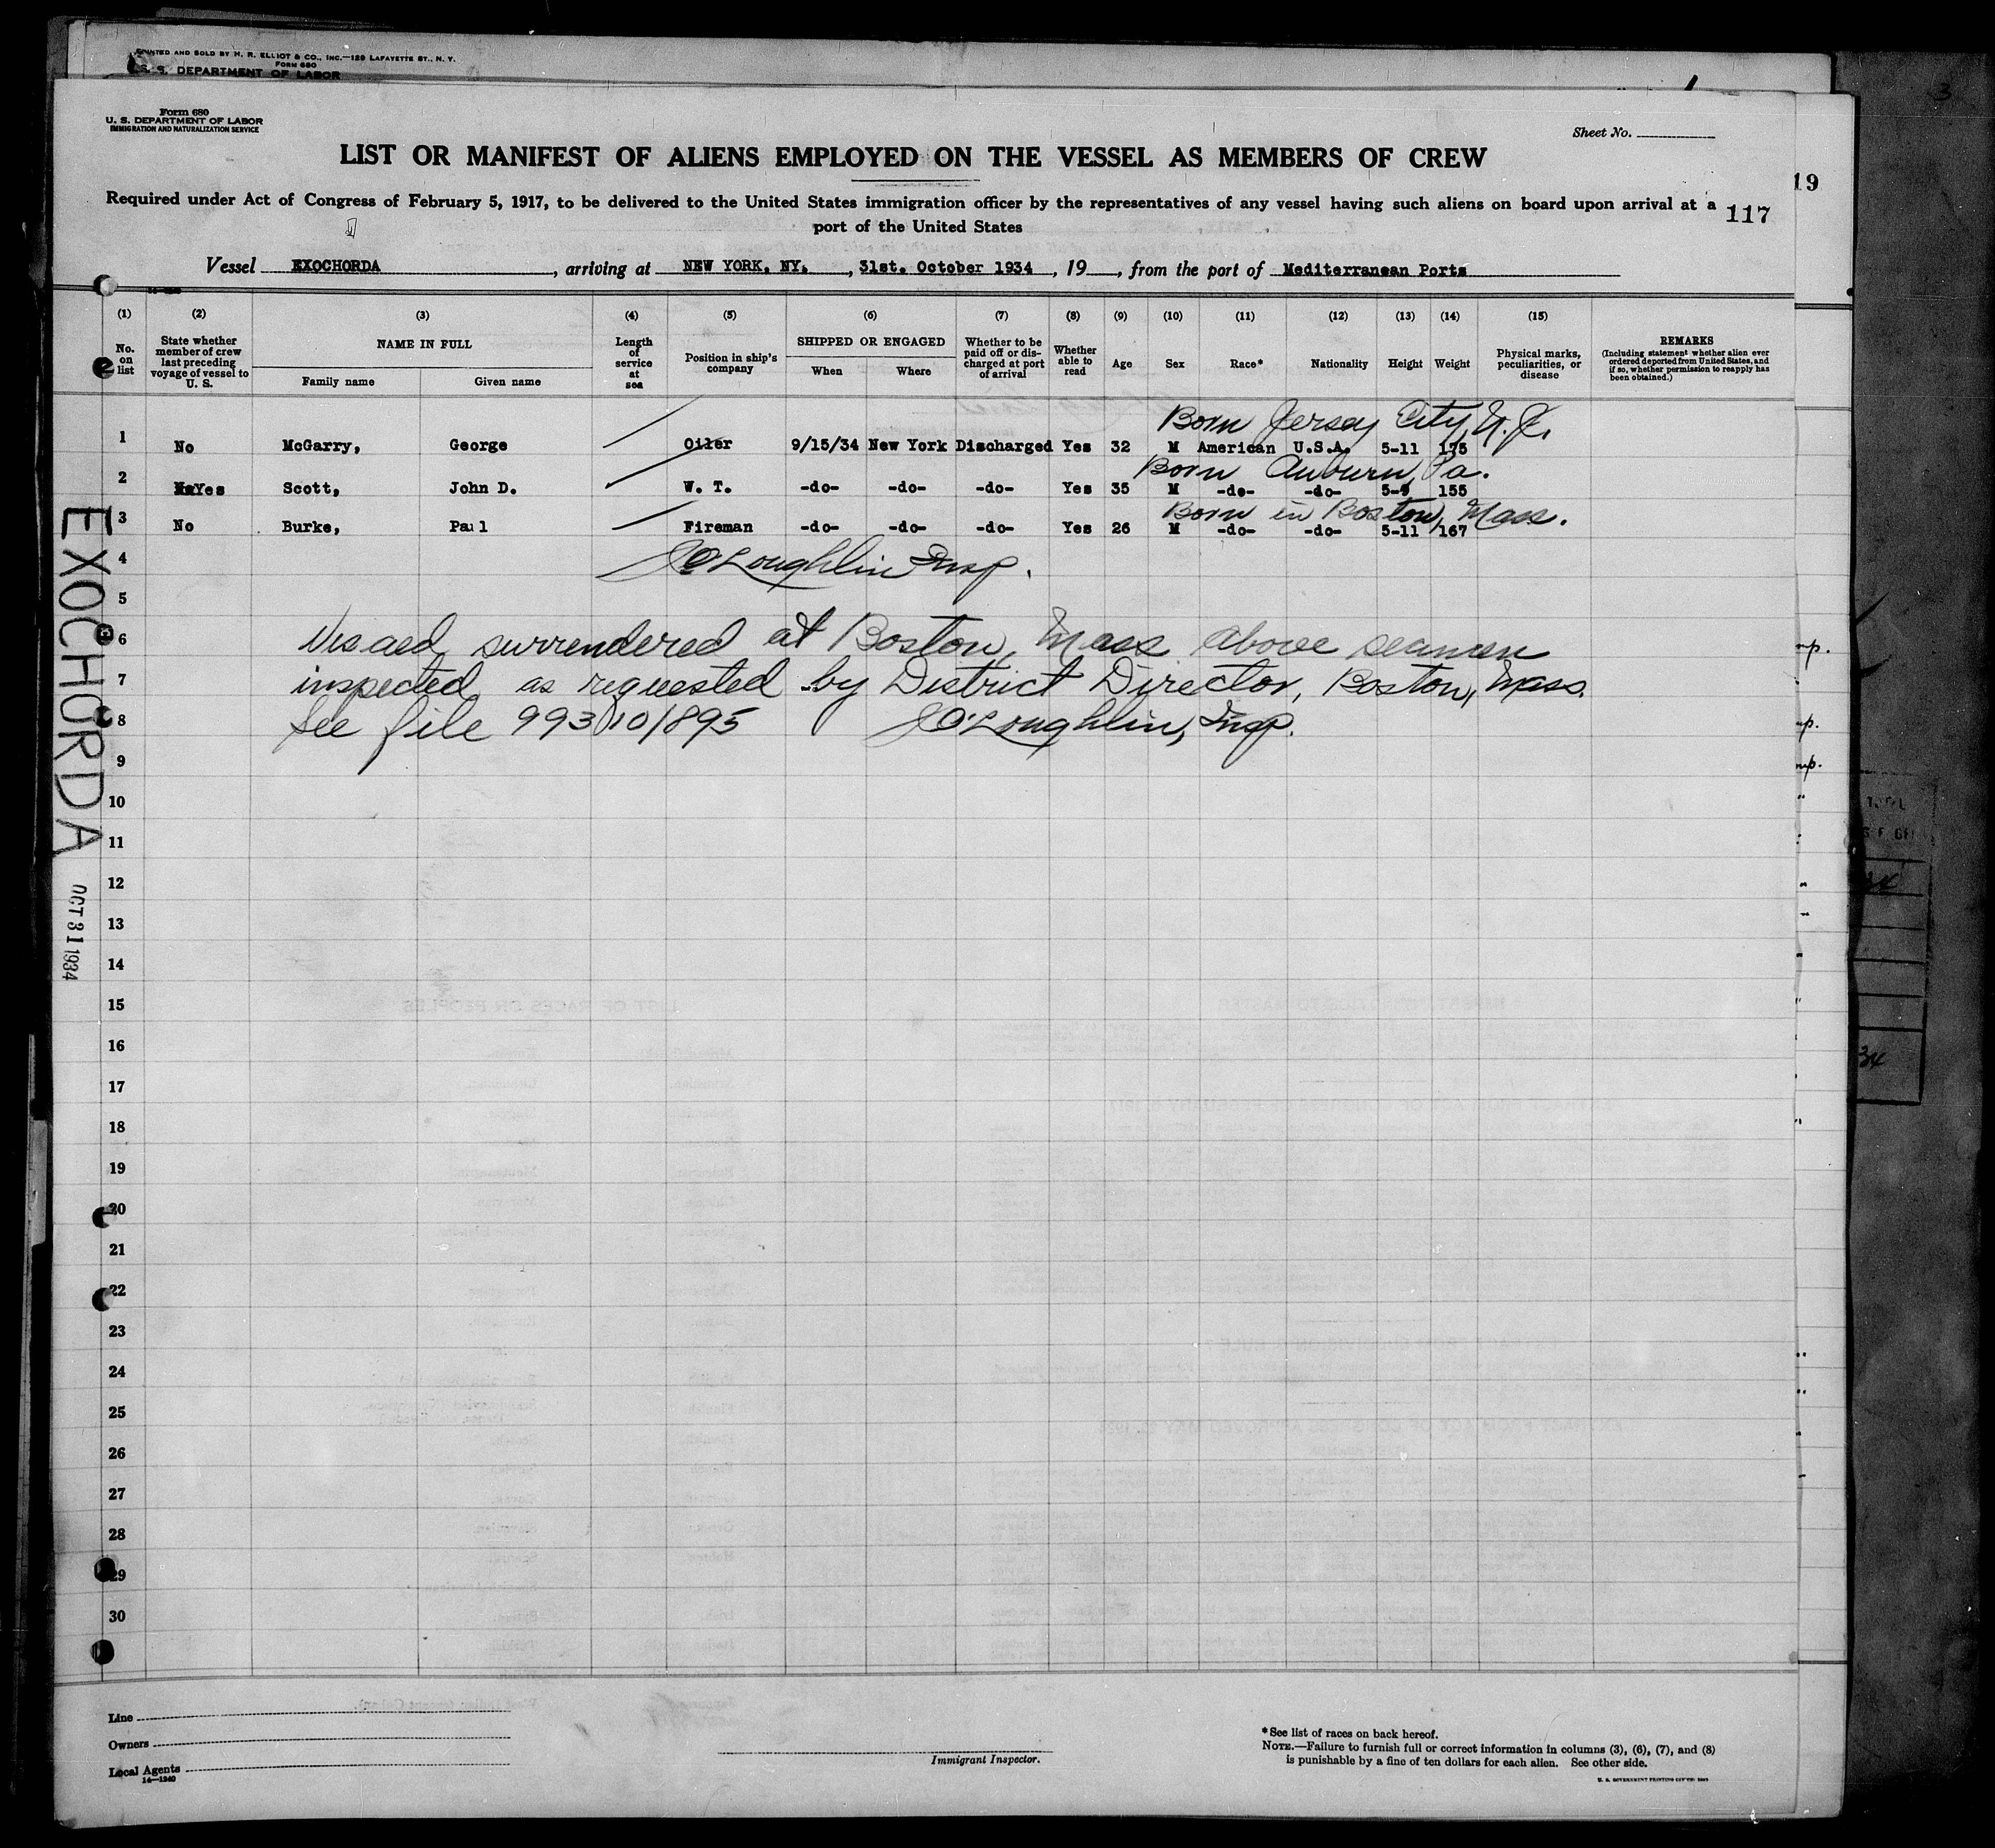 PRINTED AND SOLD BY H. R. ELLIOT & CO., INC.—129 LAFAYETTE ST., N. Y.
FORM 680
U. S. DEPARTMENT OF LABOR
Form 680
U. S. DEPARTMENT OF LABOR
IMMIGRATION AND NATURALIZATION SERVICE
Sheet No.
LIST OR MANIFEST OF ALIENS EMPLOYED ON THE VESSEL AS MEMBERS OF CREW
19
Required under Act of Congress of February 5, 1917, to be delivered to the United States immigration officer by the representatives of any vessel having such aliens on board upon arrival at a
port of the United States
117
Vessel EXOCHORDA, arriving at NEW YORK, NY., 31st. October 1934, 19 , from the port of Mediterranean Ports
(1) (2) (3) (4) (5) (6) (7) (8) (9) (10) (11) (12) (13) (14) (15)
No. on list
State whether member of crew last preceding voyage of vessel to U. S.
NAME IN FULL
Family name Given name
Length of service at sea
Position in ship's company
SHIPPED OR ENGAGED
When Where
Whether to be paid off or discharged at port of arrival
Whether able to read
Age
Sex
Race*
Nationality
Height
Weight
Physical marks, peculiarities, or disease
REMARKS
(Including statement whether alien ever ordered deported from United States, and if so, whether permission to reapply has been obtained.)
Born Jersey City, N. J.
1 No McGarry, George Oiler 9/15/34 New York Discharged Yes 32 M American U.S.A. 5-11 175
Born Auburn, Pa.
2 Yes Scott, John D. W. T. -do- -do- -do- Yes 35 M -do- -do- 5-9 155
Born in Boston, Mass.
3 No Burke, Paul Fireman -do- -do- -do- Yes 26 M -do- -do- 5-11 167
4 J O'Loughlin Insp.
5
6 Visaed, surrendered at Boston, Mass above seamen
7 inspected as requested by District Director, Boston, Mass.
8 See file 99310/895 J O'Loughlin, Insp.
9
10
11
12
13
14
15
16
17
18
19
20
21
22
23
24
25
26
27
28
29
30
EXOCHORDA
OCT 31 1934
Line
Owners
Local Agents
14—1240
Immigrant Inspector.
*See list of races on back hereof.
NOTE.—Failure to furnish full or correct information in columns (3), (6), (7), and (8)
is punishable by a fine of ten dollars for each alien. See other side.